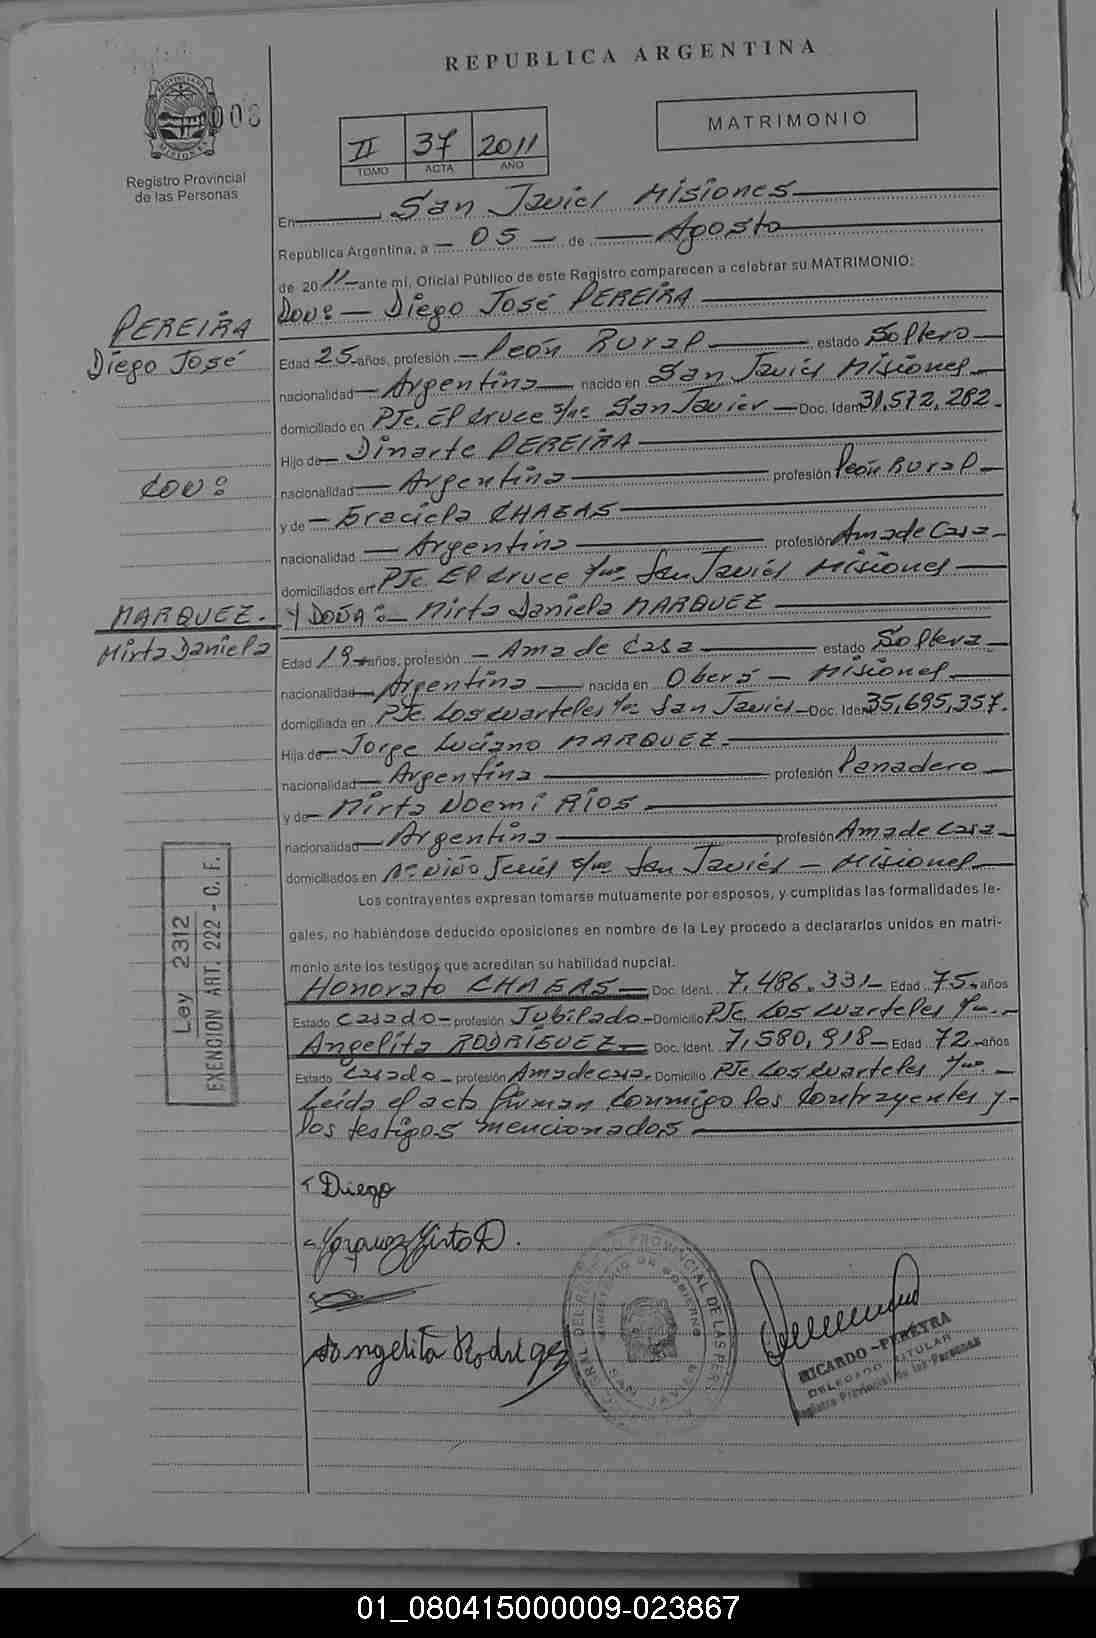 REPUBLICA ARGENTINA
PROVINCIA DE MISIONES
008
Registro Provincial
de las Personas
II 37 2011
TOMO ACTA AÑO
MATRIMONIO
En San Javier Misiones
República Argentina, a - 05 - de Agosto
de 2011 - ante mí, Oficial Público de este Registro comparecen a celebrar su MATRIMONIO:
PEREIRA
Diego José
CON:
MARQUEZ.
Mirta Daniela
DON: - Diego José PEREIRA
Edad 25 años, profesión - Peón Rural estado Soltero
nacionalidad - Argentina nacido en San Javier Misiones
domiciliado en Pje. El Cruce s/nº San Javier - Doc. Ident. 31,572,282.
Hijo de - Dinarte PEREIRA
nacionalidad - Argentina profesión Peón Rural
y de - Graciela CHAGAS
nacionalidad - Argentina profesión Ama de Casa
domiciliados en Pje. El Cruce s/nº San Javier Misiones
Y DOÑA: - Mirta Daniela MARQUEZ
Edad 19 años, profesión - Ama de Casa estado Soltera
nacionalidad - Argentina nacida en Oberá - Misiones
domiciliada en Pje. Los Cuarteles s/nº San Javier - Doc. Ident. 35,695,357.
Hija de - Jorge Luciano MARQUEZ.
nacionalidad - Argentina profesión Panadero
y de - Mirta Noemi RIOS
nacionalidad - Argentina profesión Ama de Casa
domiciliados en Bº Niño Jesús s/nº San Javier - Misiones
Los contrayentes expresan tomarse mutuamente por esposos, y cumplidas las formalidades le-
gales, no habiéndose deducido oposiciones en nombre de la Ley procedo a declararlos unidos en matri-
monio ante los testigos que acreditan su habilidad nupcial.
Honorato CHAGAS - Doc. Ident. 7,486.331 - Edad 75 años
Estado Casado - profesión Jubilado - Domicilio Pje. Los Cuarteles s/nº. -
Angelita RODRIGUEZ - Doc. Ident. 7,580,918 - Edad 72 años
Estado Casado - profesión Ama de casa. Domicilio Pje. Los Cuarteles s/nº. -
Leída el acta firman conmigo los contrayentes y -
los testigos mencionados
Ley 2312
EXENCION ART. 222 - C. F.
Diego
Marquez Mirta D.
Angelita Rodrigez
MINISTERIO DE GOBIERNO
SAN JAVIER
RICARDO PEREYRA
DELEGADO TITULAR
Registro Provincial de las Personas
01_080415000009-023867